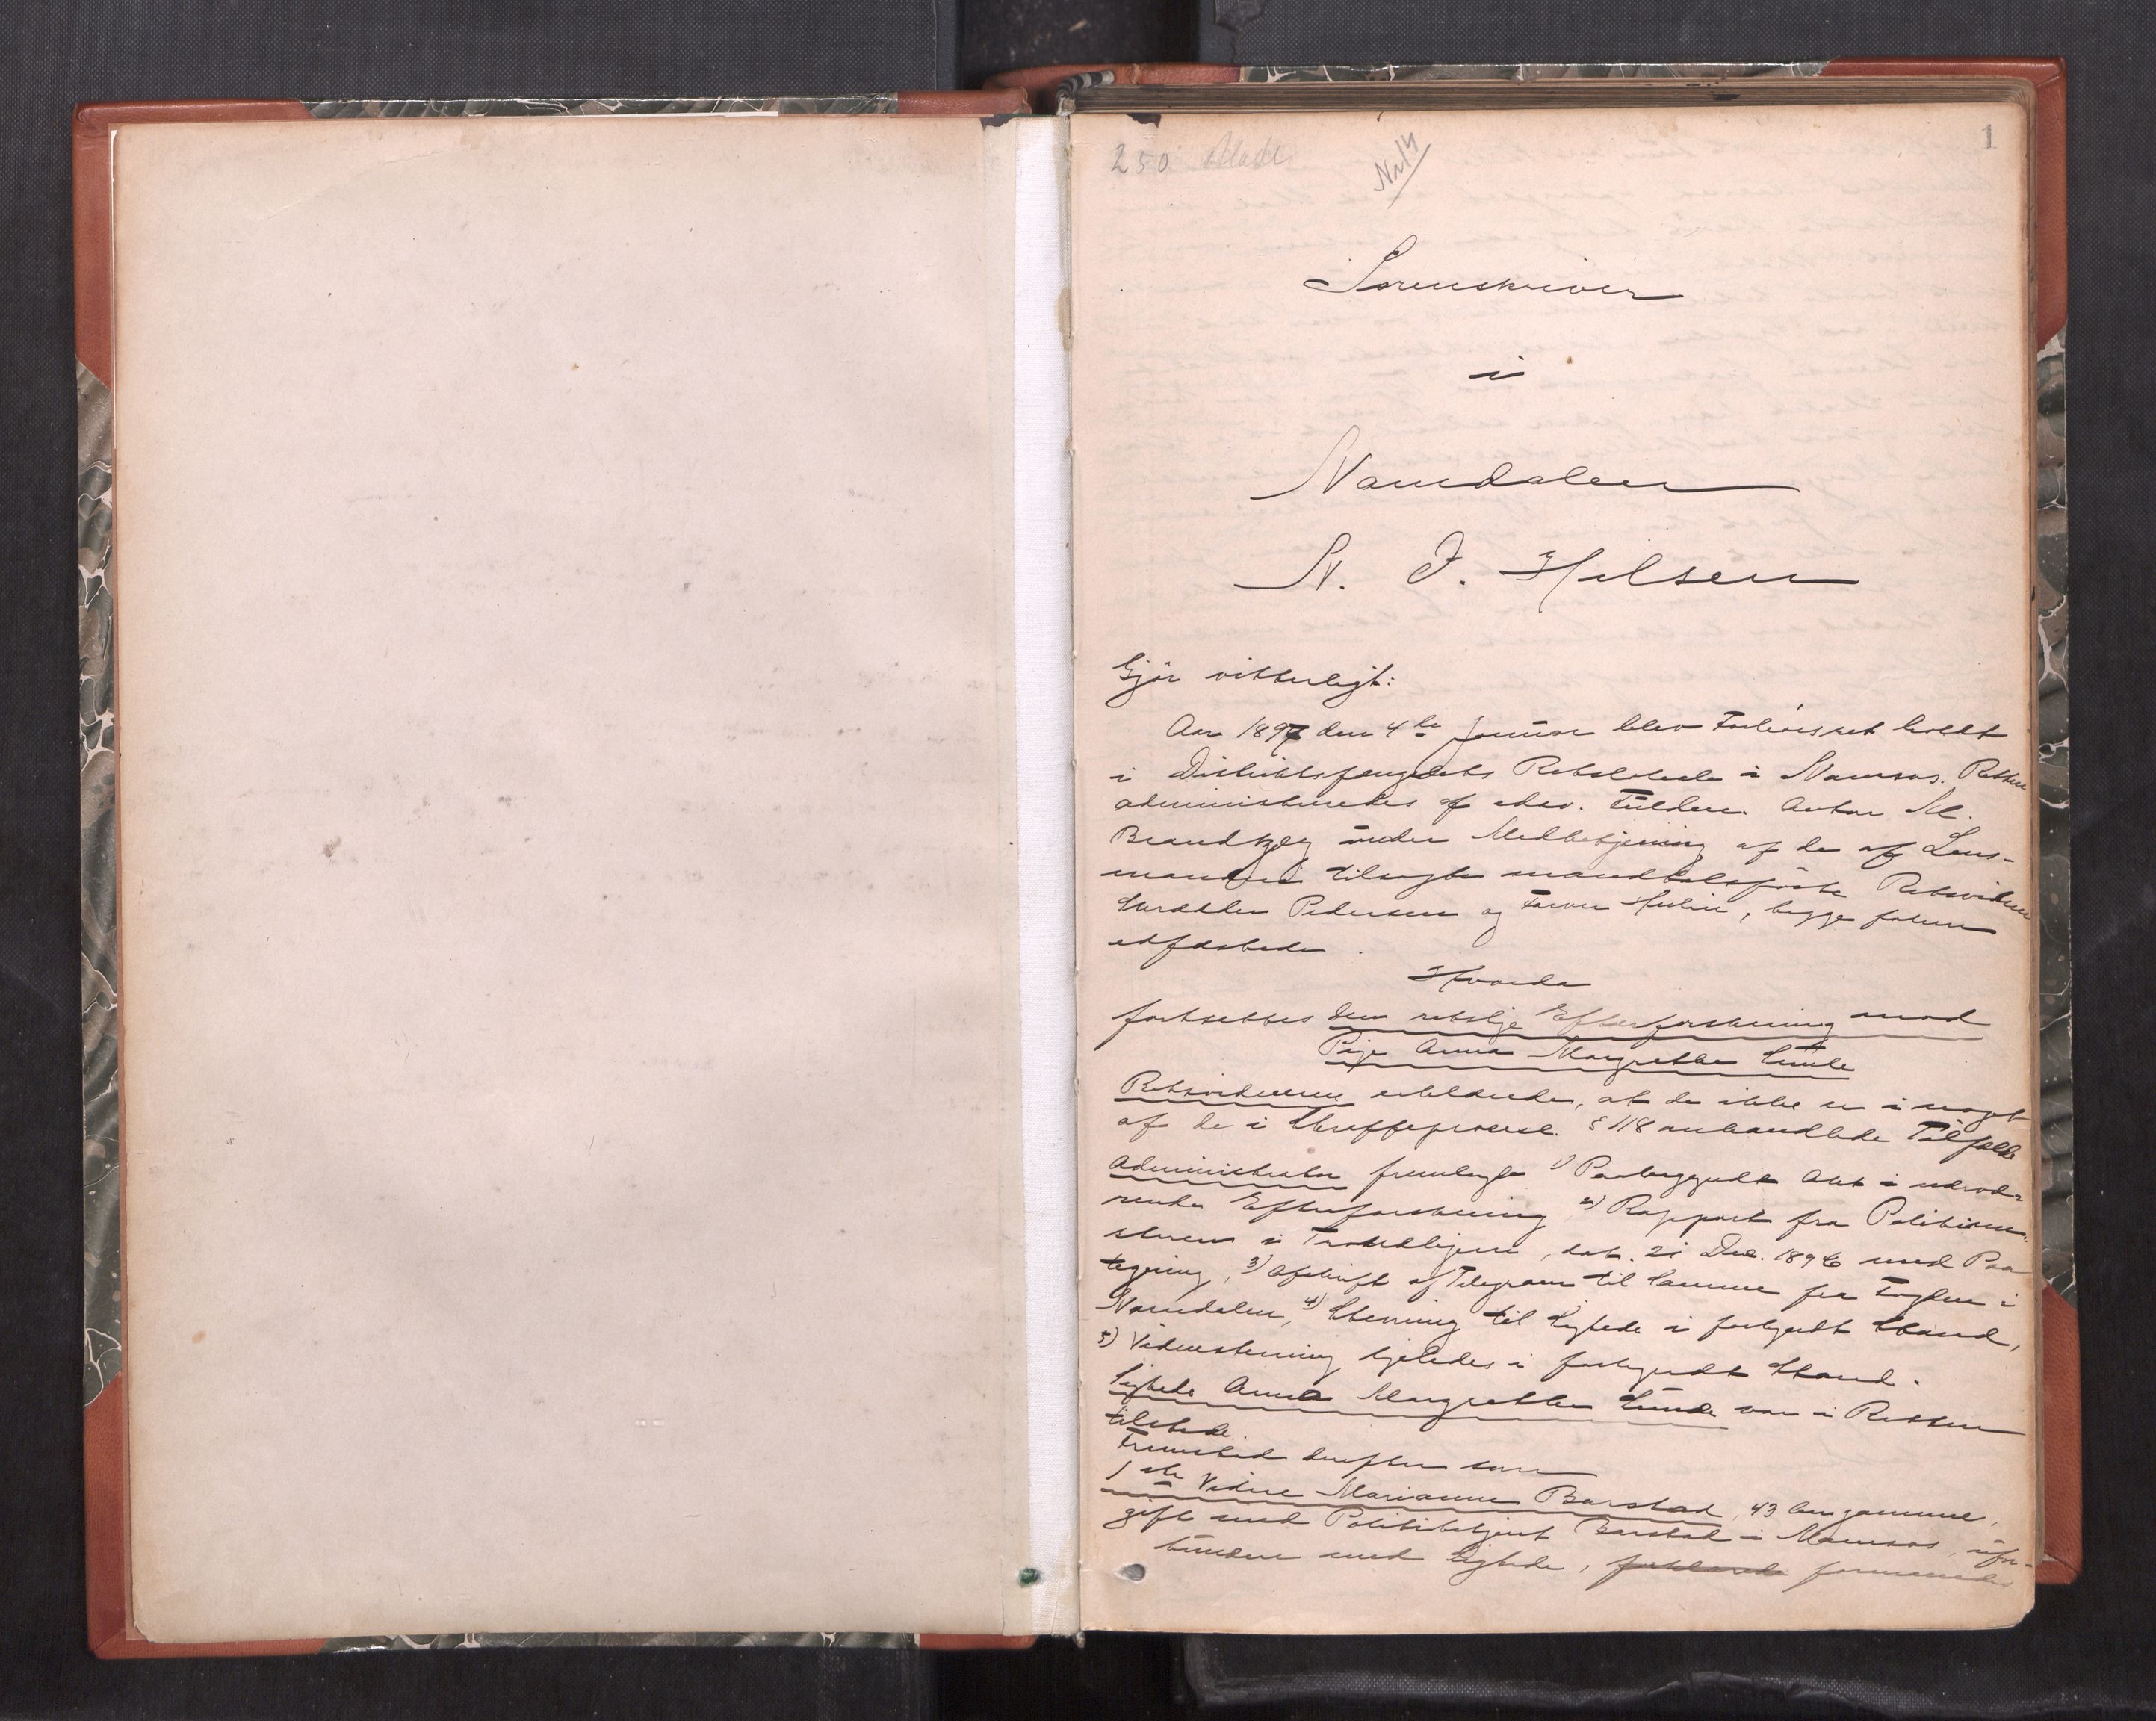 250 Blade
1
Sorenskriver
i
Namdalen
N. J. Hilsen
Gjør vitterligt:
Aar 1897 den 4de Januar blev Forhørsret holdt
i Distriktsfængslets Retslokale i Namsos. Retten
administreredes af edsv. Fuldm. Anton M.
Brandtzæg under Medbetjening af de af Lens-
manden tilsagte mandtalsførte Retsvidner
Pedersen og begge forhen
edfæstede.
Hvorda
fortsattes den retslige Efterforskning mod
Pige Anna Margrethe Lunde
Retsvidnerne erklærede, at de ikke er i noget
af de i Straffeprocesl. § 118 omhandlede Tilfælde
Administrator fremlagde 1) Paabegyndt Akt i nærvæ-
rende Efterforskning 2) Rapport fra Politime-
steren i Trondhjem, dat. 21 Dec. 1896 med Paa
tegning, 3) Afskrift af Telegram til Samme fra Fogden i
Namdalen, 4) Stevning til Sigtede i forkyndt Stand,
5) Vidnestevning ligeledes i forkyndt Stand.
Sigtede Anna Margrethe Lunde var i Retten
tilstede.
Fremstod derefter som
1ste Vidne Marianne Barstad, 43 Aar gammel,
gift med Politibetjent Barstad i Namsos, ufor-
bunden med Sigtede, forklarede formanedes